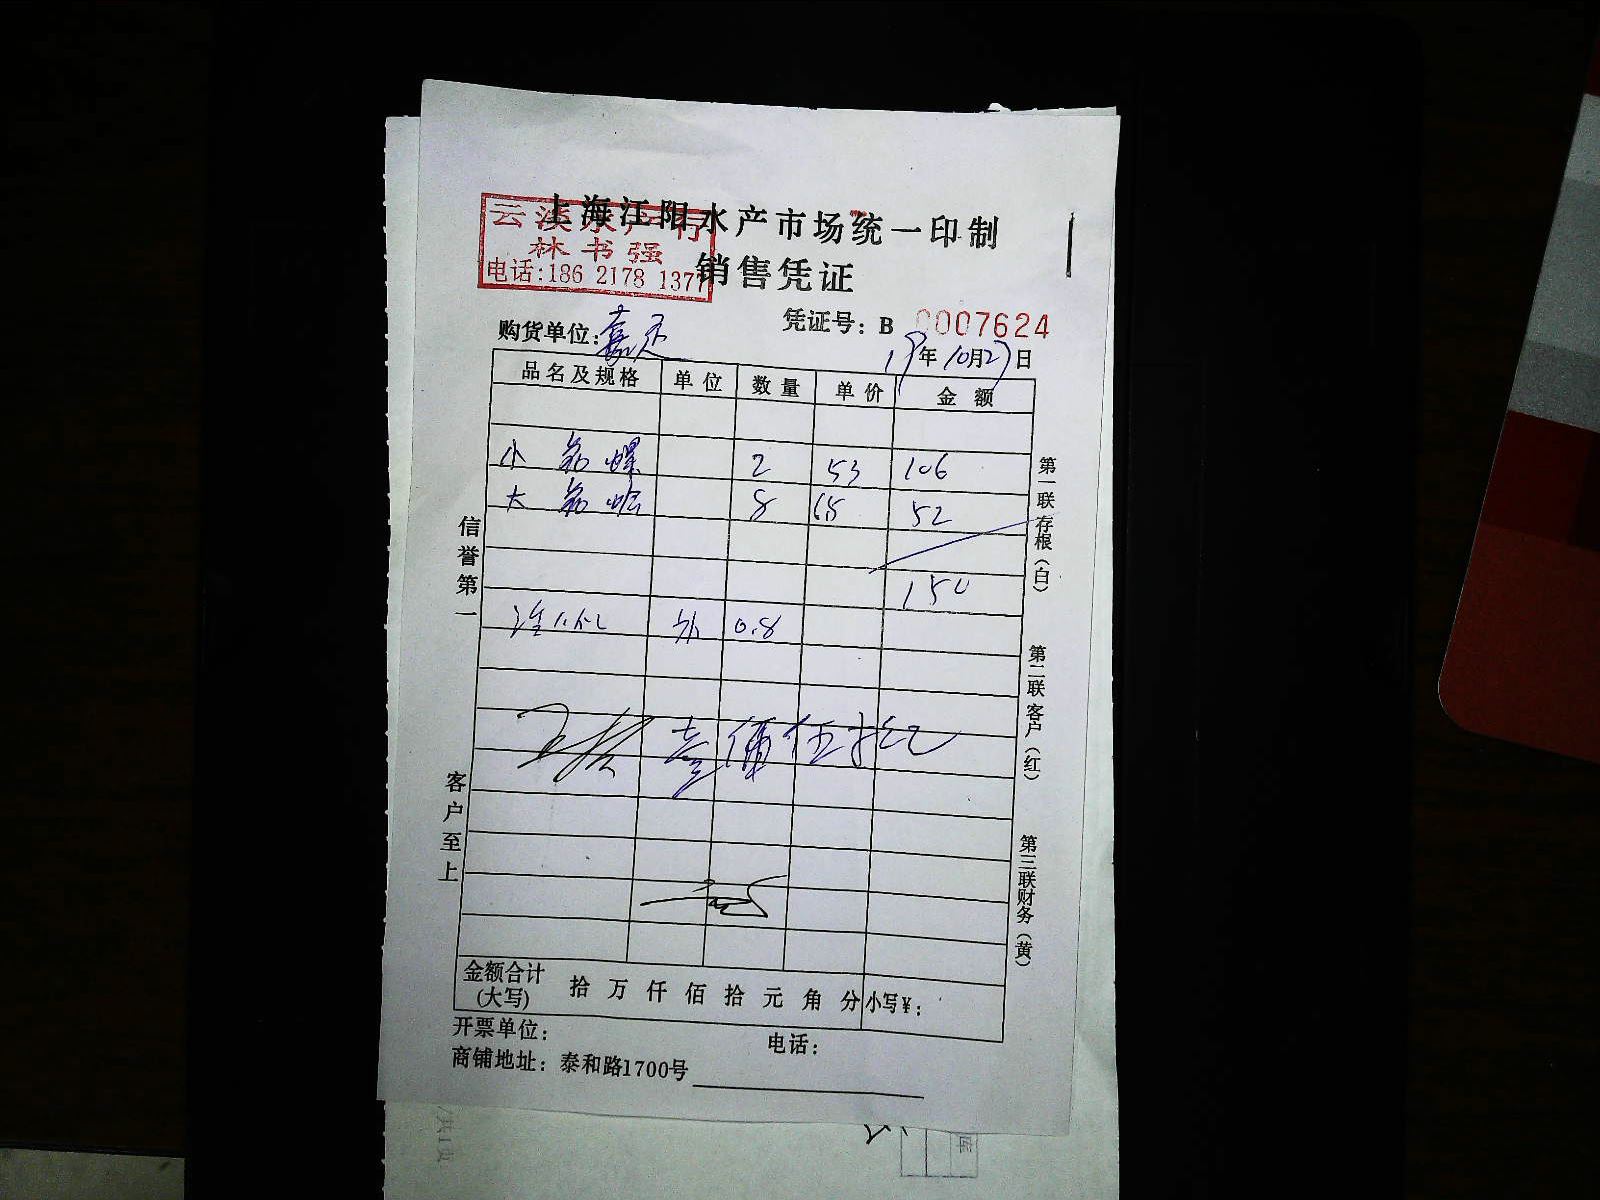 上海江阳水产市场统一印制
云溪水产行
林书强
电话:186 2178 1377
销售凭证
凭证号: B 0007624
购货单位:
19年10月27日
品名及规格 单位 数量 单价 金额
小 螺 2 53 106
大 8 52
150
0.8
壹佰伍拾元
信誉第一
客户至上
第一联存根(白)
第二联客户(红)
第三联财务(黄)
金额合计(大写) 拾 万 仟 佰 拾 元 角 分 小写¥:
开票单位: 电话:
商铺地址: 泰和路1700号